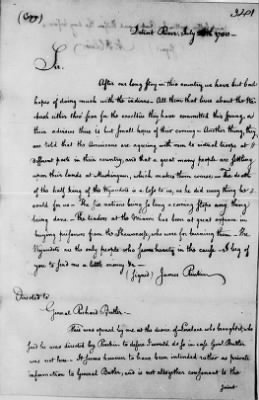 (Copy)
3201
Detroit River, July
Sir.
After our long stay in this country we have but bad
hopes of doing much with the indians. All them that live about the
either
fear for the cruelties they have committed this spring, or
there advisers there is but small hopes of their coming in Another thing, they
are told that the Americans are agreeing with men to inlist troops at
different posts in their country, and that a great many people are settling
upon their lands at Muskingum, which makes them uneasy. The death
of the half king of the Wyandots is a loss to us, as he did every thing he
could for us. The six nations being so long a coming stops any thing
being done. The traders at the Miamis has been at great expense in
buying prisoners from the Shawanoese, who were for burning them. The
Wyandots are the only people who seem hearty in the cause. I beg of
you to send me a little money &c
(Signed) James Rankin
Directed to
General Richard Butler.
This was opened by me at the desire of Loveless who brought it, who
said he was directed by Rankin to desire I would do so in case Genl Butler
was not here. It seems however to have been intended rather as private
information to General Butler, and is not altogether consonant to the
joint